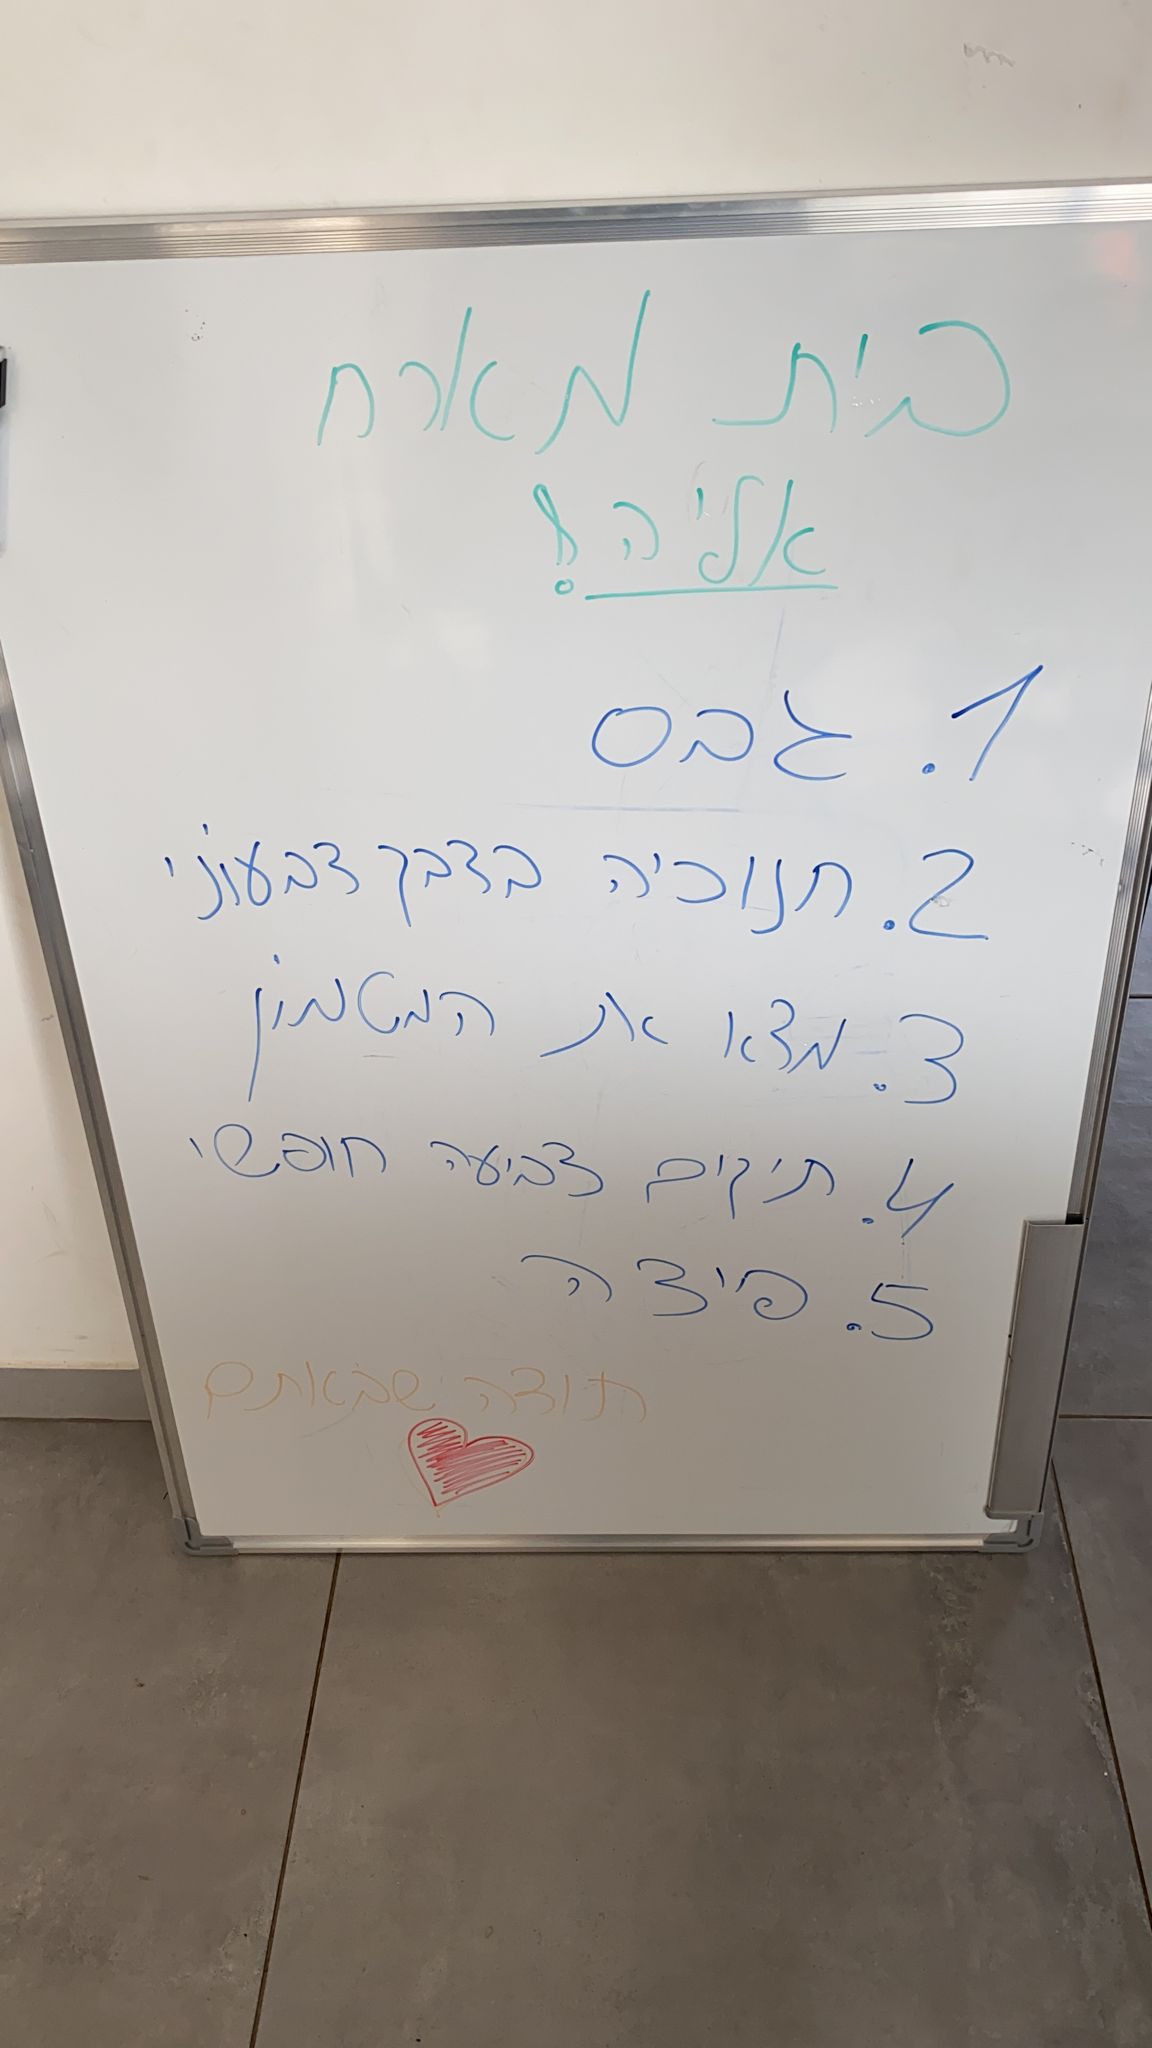 בית מארח
אליה!
1. גבס
2. חנוכיה בדבק צבעוני
3. מצא את המטמון
4. תיקים צביעה חופשי
5. פיצה
תודה שבאתם